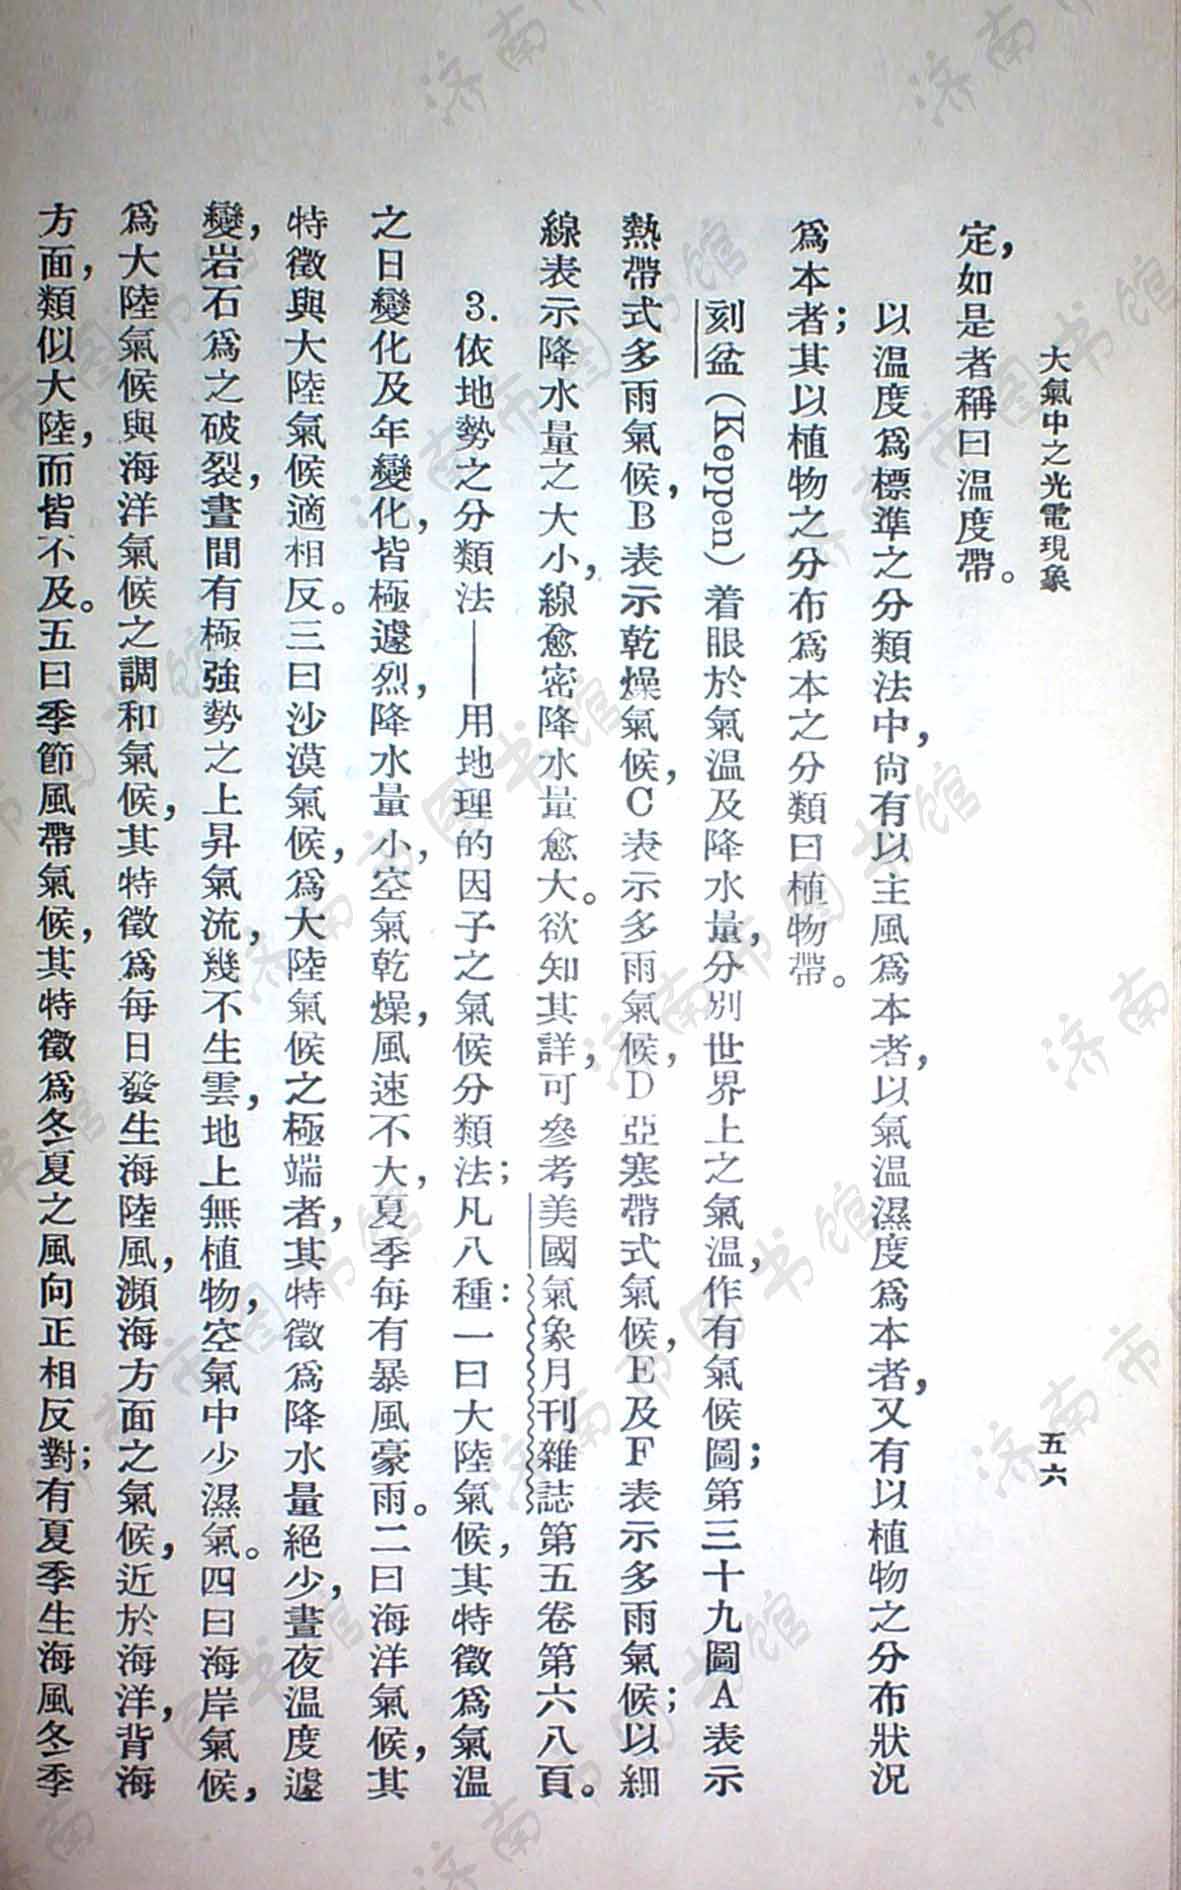 大氣中之光電現象
五六
定，如是者稱曰温度帶。
以温度爲標準之分類法中，尚有以主風爲本者，以氣温濕度爲本者，又有以植物之分布狀況
爲本者；其以植物之分布爲本之分類曰植物帶。
刻盆（Keppen）着眼於氣温及降水量，分別世界上之氣温，作有氣候圖；第三十九圖A表示
熱帶式多雨氣候，B表示乾燥氣候，C表示多雨氣候，D亞寒帶式氣候，E及F表示多雨氣候；以細
線表示降水量之大小，線愈密降水量愈大。欲知其詳，可參考美國氣象月刊雜誌第五卷第六八頁。
3. 依地勢之分類法——用地理的因子之氣候分類法；凡八種：一曰大陸氣候，其特徵爲氣温
之日變化及年變化，皆極遽烈，降水量小，空氣乾燥，風速不大，夏季每有暴風豪雨。二曰海洋氣候，其
特徵與大陸氣候適相反。三曰沙漠氣候，爲大陸氣候之極端者，其特徵爲降水量絕少，晝夜温度遽
變，岩石爲之破裂，晝間有極強勢之上昇氣流，幾不生雲，地上無植物，空氣中少濕氣。四曰海岸氣候，
爲大陸氣候與海洋氣候之調和氣候，其特徵爲每日發生海陸風，瀕海方面之氣候，近於海洋，背海
方面，類似大陸，而皆不及。五曰季節風帶氣候，其特徵爲冬夏之風向正相反對；有夏季生海風冬季
濟南市图书馆